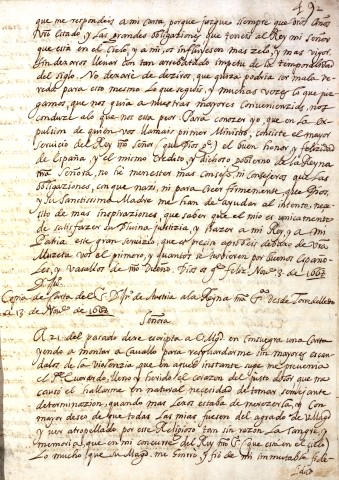 492
que me respondeis a mi carta, porque juzgue siempre que vros años
vro estado, y las grandes obligaciones que teneis al Rey mi señor
que està en el Cielo, y a mi, os influyesen mas zelo, y mas vigor
sin dexaros llevar con tan arrebatado impetu de la temporalidad
del siglo. No dexaré de deziros, que quiza podria ser mala ve-
reda para esto mesmo lo que seguis, y muchas vezes lo que pa-
gamos, que nos guia a nuestras mayores conveniencias, nos
conduze a lo que nos esta peor. Para conozer yo, que en la ex-
pulsion de quien vos llamais primer Ministro, consiste el mayor
servicio del Rey nro señor (que Dios gde) el buen honor y felizidad
de España, y el mismo credito, y dichoso gobierno de la Reyna
nra señora, no he menester mas consejo, ni consejeros que las
obligaziones, con que nazi, ni para creer firmemente, que Dios,
y su Sanctissima Madre me han de ayudar al intento, nece-
sito de mas inspiraziones, que saber que el mio es unicamente
de satisfazer su Divina Justizia, y hazer a mi Rey, y a mi
Patria este gran servizio, que es precio
vos el primero, y quantos se tuvieren por buenos Españo-
les, y vasallos de nro Dueño. Dios os gde feliz Novre 3. de 1668
Copia de Carta del Sr Dn Ju de Austria a la Reyna nra Sra desde Torre de Lle
a 13 de Novre de 1668
Señora
A 21. del pasado dexe escripta a V.Mgd en Consuegra una Carta
yendo a montar a cavallo para resguardarme sin mayores escan-
dalos de la violenzia que en aquel instante supe me prevenia
el Pe Everardo, lleno y herido el corazon del justo dolor que me
causó el hallarme en natural necesidad de tomar semejante
determinazion, quando mas lexos estaba de merezerla, y con
mayor deseo de que todas las mias fuesen del agrado de V.Mgd
y ver atropellado por este Religioso tan sin razon la sangre, y
memoria, que en mi concurre del Rey mi Sr (que esta en el cielo)
lo mucho que su Mgd me honró, y fió de mi inmutable fide-
lidad